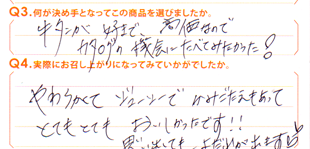 Q3.何が決め手となってこの商品を選びましたか。
牛タンが好きで、高価なので
カタログの機会にたべてみたかった!
Q4.実際にお召し上がりになってみていかがでしたか。
やわらかくて ジューシーで かみごたえもあって
とてもとても おいしかったです!!
思い出しても よだれが出ます